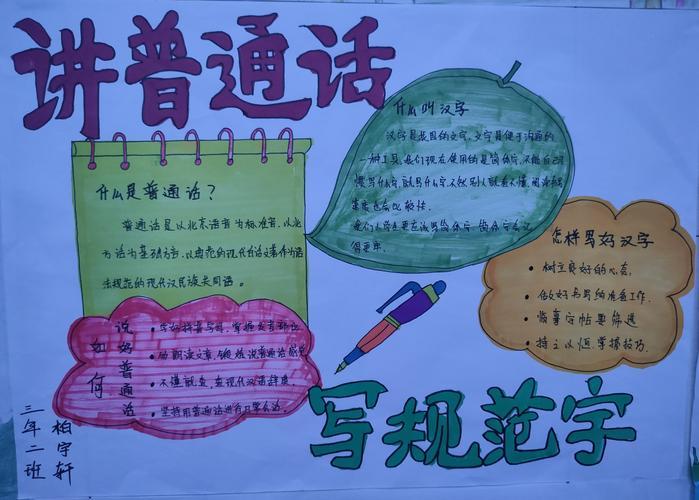 讲普通话
什么是普通话？
普通话是以北京语音为标准音，以北
方话为基础方言，以典范的现代白话文著作为语
法规范的现代汉民族共同语。
什么叫汉字
汉字是我国的文字，文字是便于沟通的
一种工具，我们现在使用的是简体字，不能自己
想写什么字，就写什么字，不然别人就看不懂，阅读
难度也会比较大。
怎样写好汉字
树立良好的心态。
做好书写的准备工作。
临摹字帖要筛选
持之以恒，掌握技巧。
如何
说好普通话
学好拼音字母，掌握发音部位
不懂就查，查现代汉语辞典。
坚持用普通话进行日常会话。
写规范字
三年二班
柏宇轩